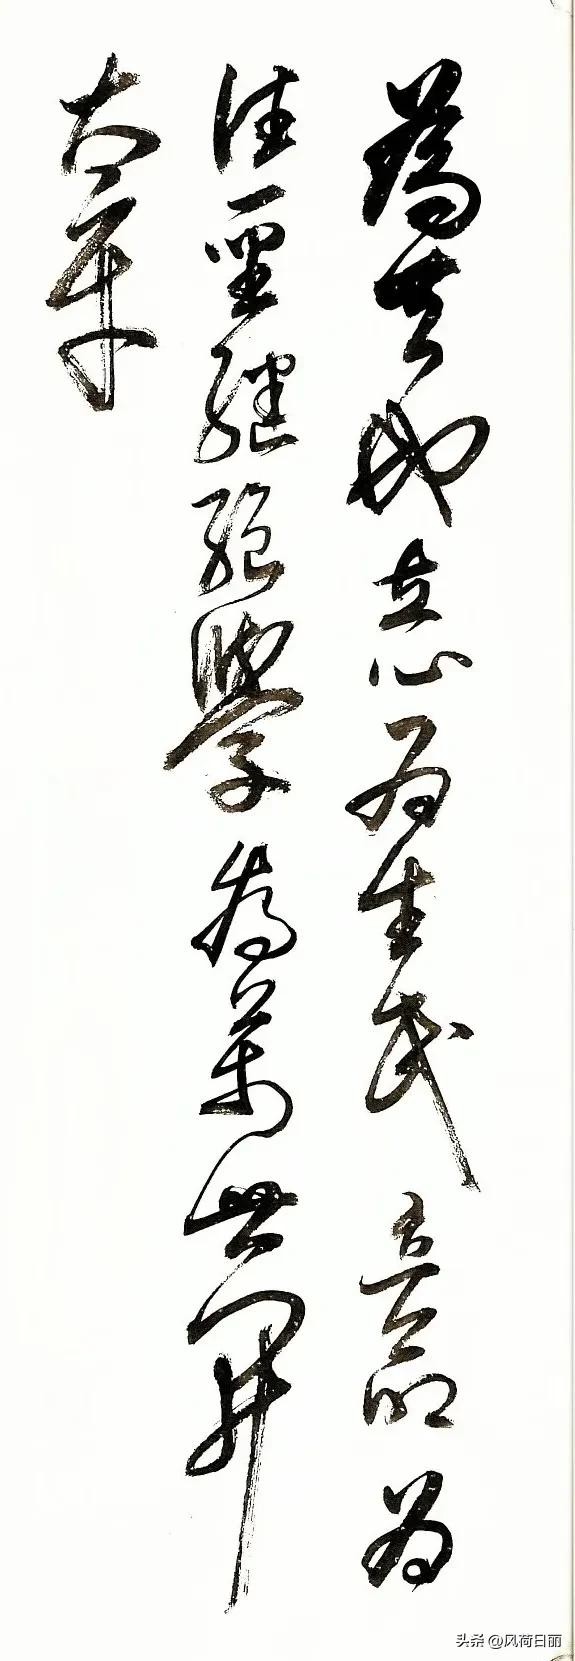 為天地立心為生民立命為
往聖繼絕學為萬世開
太平
头条 @风荷日丽